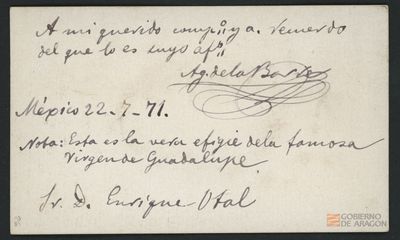 A mi querido comp.º y a. recuerdo
del que lo es suyo af.º
Ag. de la Barre
México 22-7-71.
Nota: Esta es la vera efigie de la famosa
Virgen de Guadalupe
Sr. D. Enrique Otal
GOBIERNO
DE ARAGON